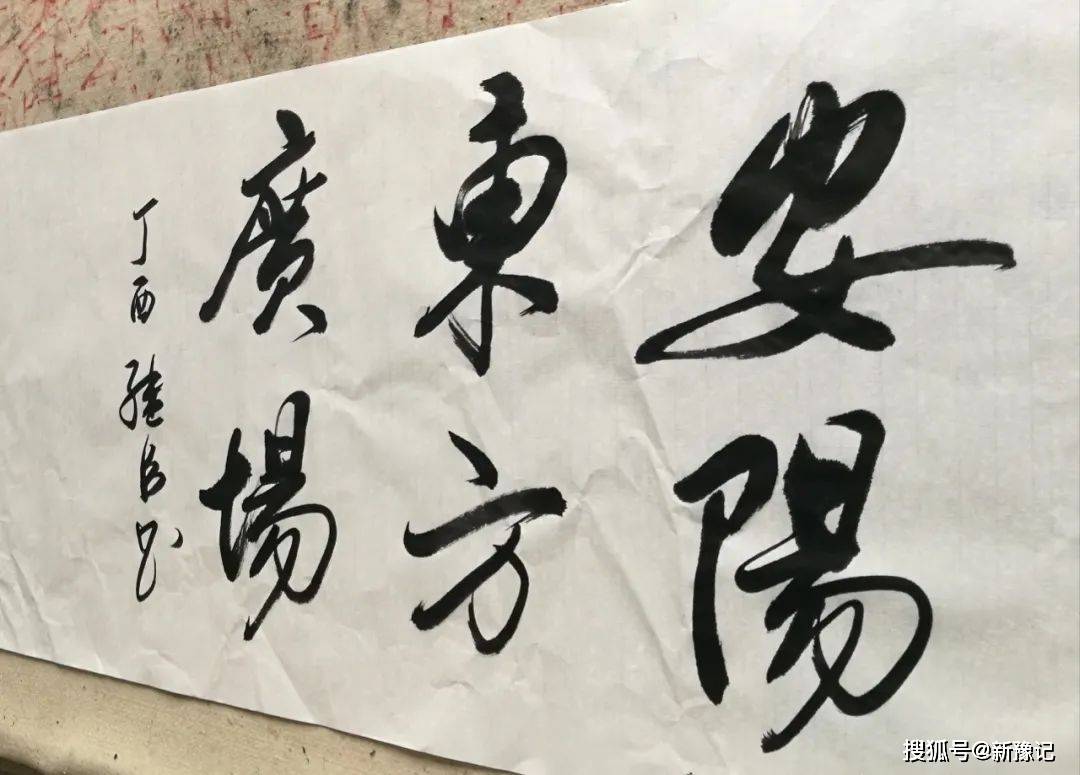 安陽
東方
廣場
丁酉
書
搜狐号@新豫记